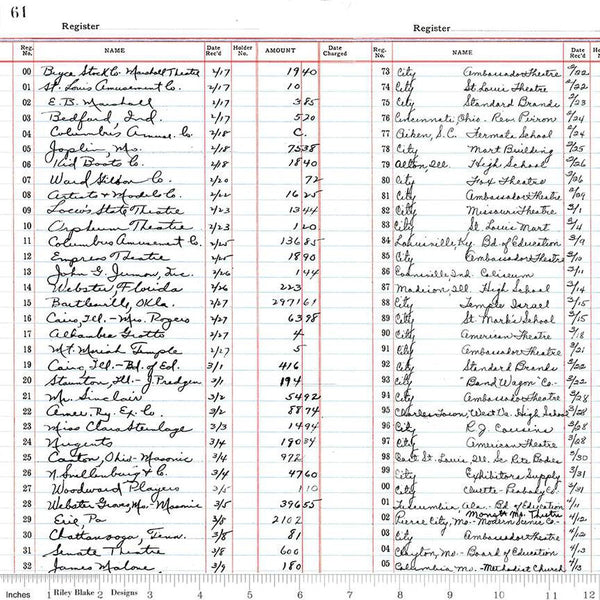 61
Register
Register
Reg. No. NAME Date Rec'd Holder No. AMOUNT Date Charged
Reg. No. NAME Date Rec'd H N
00 Bryce Stock Co. Marshall Theatre 2/17 1940
01 St. Louis Amusement Co. 2/17 10
02 E.B. Marshall 2/17 385
03 Bedford, Ind. 2/17 520
04 Columbus Amuse. Co. 2/18 C.
05 Joplin, Mo. 2/18 7538
06 Kid Boots Co. 2/18 1840
07 Ward Co. 2/20 72
08 Artists + Models Co. 2/22 1625
09 Loew's State Theatre 2/23 1344
10 Orpheum Theatre 2/23 120
11 Columbus Amusement Co. 2/25 13685
12 Empress Theatre 2/25 1890
13 John G. Inc. 2/26 144
14 Webster, Florida 2/26 223
15 Bartleville, Okla. 2/27 297161
16 Cairo, Ill. - Mrs. Rogers 2/27 6398
17 Alhambra Grotto 2/27 4
18 Mt. Moriah Temple 2/27 5
19 Cairo, Ill. - Bd. of Ed. 3/1 416
20 Staunton, Ill. - J Predgen 3/1 194
21 Mr. Sinclair 3/2 5492
22 Amer. Ry. Ex. Co. 3/2 8874
23 Miss Clara Stenlage 3/3 1494
24 Nugents 3/4 19034
25 Canton, Ohio - Masonic 3/4 972
26 N. Snellenburg & Co. 3/4 4760
27 Woodward Players 3/5 110
28 Webster Groves, Mo. - Masonic 3/5 39655
29 Erie, Pa 3/8 2102
30 Chattanooga, Tenn. 3/8 81
31 Senate Theatre 3/8 600
32 James Malone 3/9 180
73 City Ambassador Theatre 2/22
74 City St Louis Theatre 2/22
75 City Standard Brands 2/23
76 Cincinnati, Ohio. Ravi 2/24
77 Aiken, S.C. Fermata School 2/24
78 City Mart Building 2/25
79 Alton, Ill. High School 2/26
80 City Fox Theatre
81 City Ambassador Theatre
82 City Missouri Theatre 3/1
83 City St. Louis Mart
84 Louisville, Ky. Bd of Education 3/9
85 City Ambassador Theatre
86 Connersville Ind. Coliseum
87 Madison, Ill. High School 3/14
88 City Temple Israel 3/15
89 City St. Mark's School 3/15
90 City American Theatre 3/18
91 City Ambassador Theatre 3/21
92 City Standard Brands 3/22
93 City "Band Wagon" Co. 3/22
94 City Ambassador Theatre 3/28
95 Charlestown, West Va. High School 3/28
96 City R.J. Cousins 3/28
97 City American Theatre 3/28
98 East St. Louis, Ill. Sc Rite Bodies 3/30
99 City Exhibitors Supply 3/31
00 City Cluett-Peabody Co. 3/31
01 Tuscumbia, Ala. Bd of Education 4/11
Theatre
02 Pierce City, Mo. Modern Scenic Co. 4/12
03 City Ambassador Theatre 4/12
04 Clayton, Mo. - Board of Education 4/13
05 Columbia, Mo. - Methodist Church 4/13
Inches 1 Riley Blake Designs 2 3 4 5 6 7 8 9 10 11 12